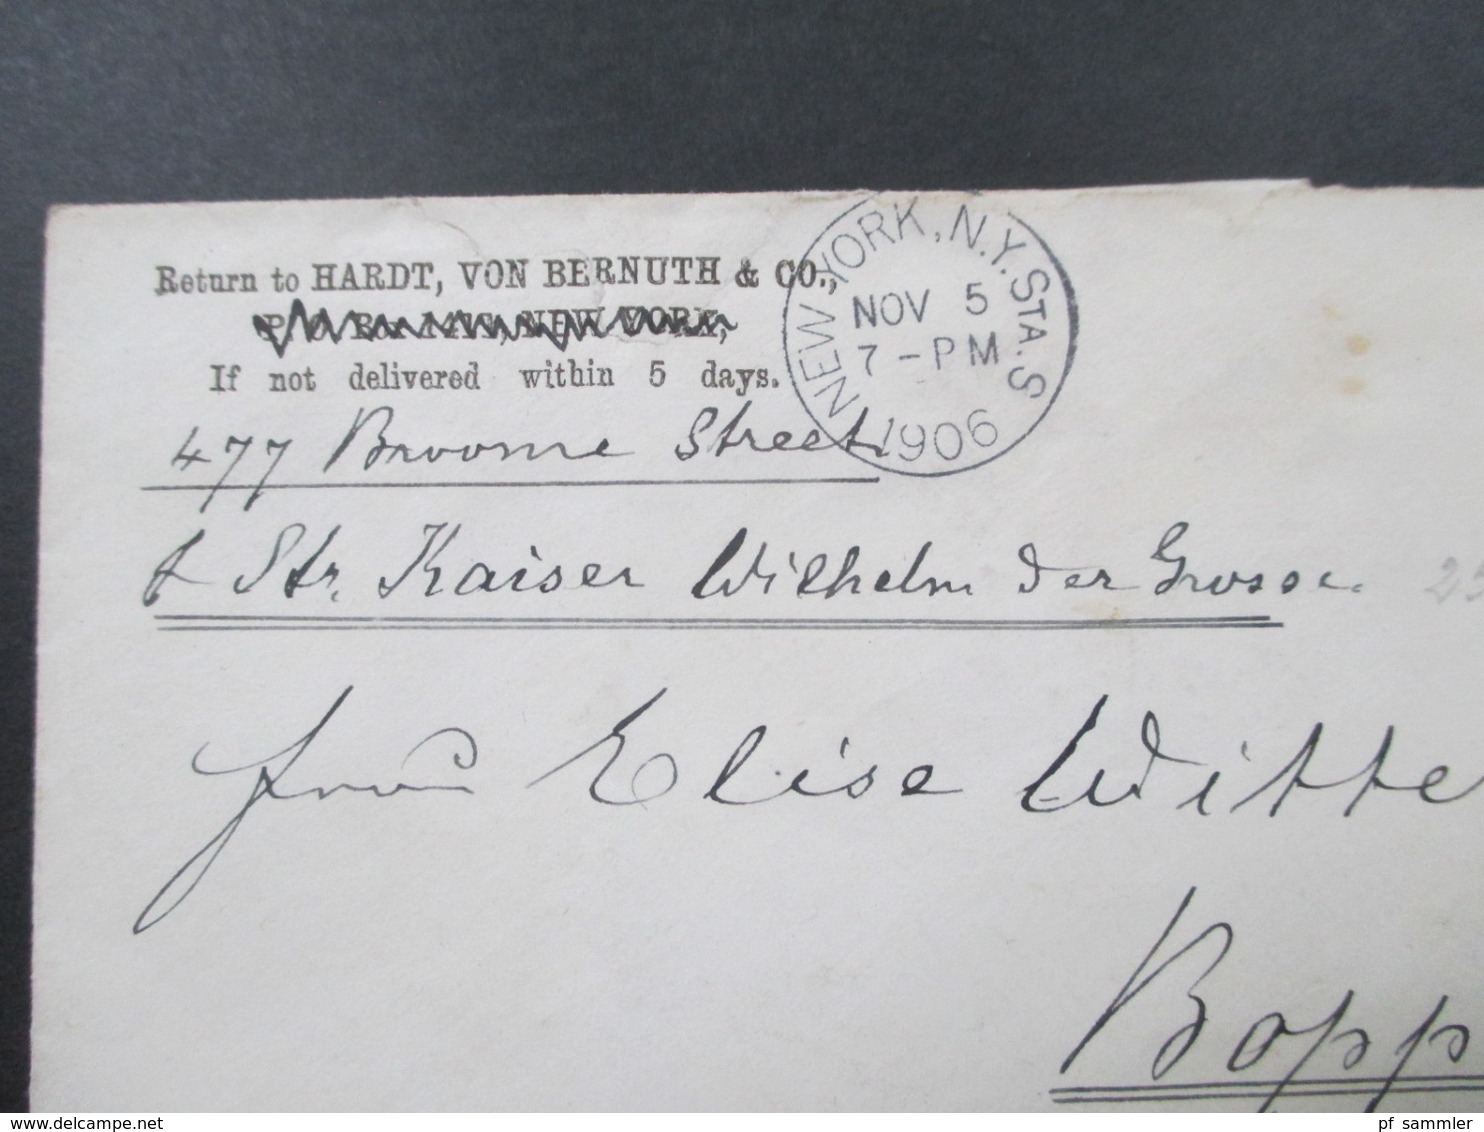 Return to HARDT, VON BERNUTH & CO.,
P. O. Box NEW YORK,
If not delivered within 5 days.
477 Broome Street
NEW YORK, N.Y. STA. S
NOV 5
7 - PM
1906
Str. Kaiser Wilhelm der Grosse.
Frau Elise Witte
Bopp
pf_sammler